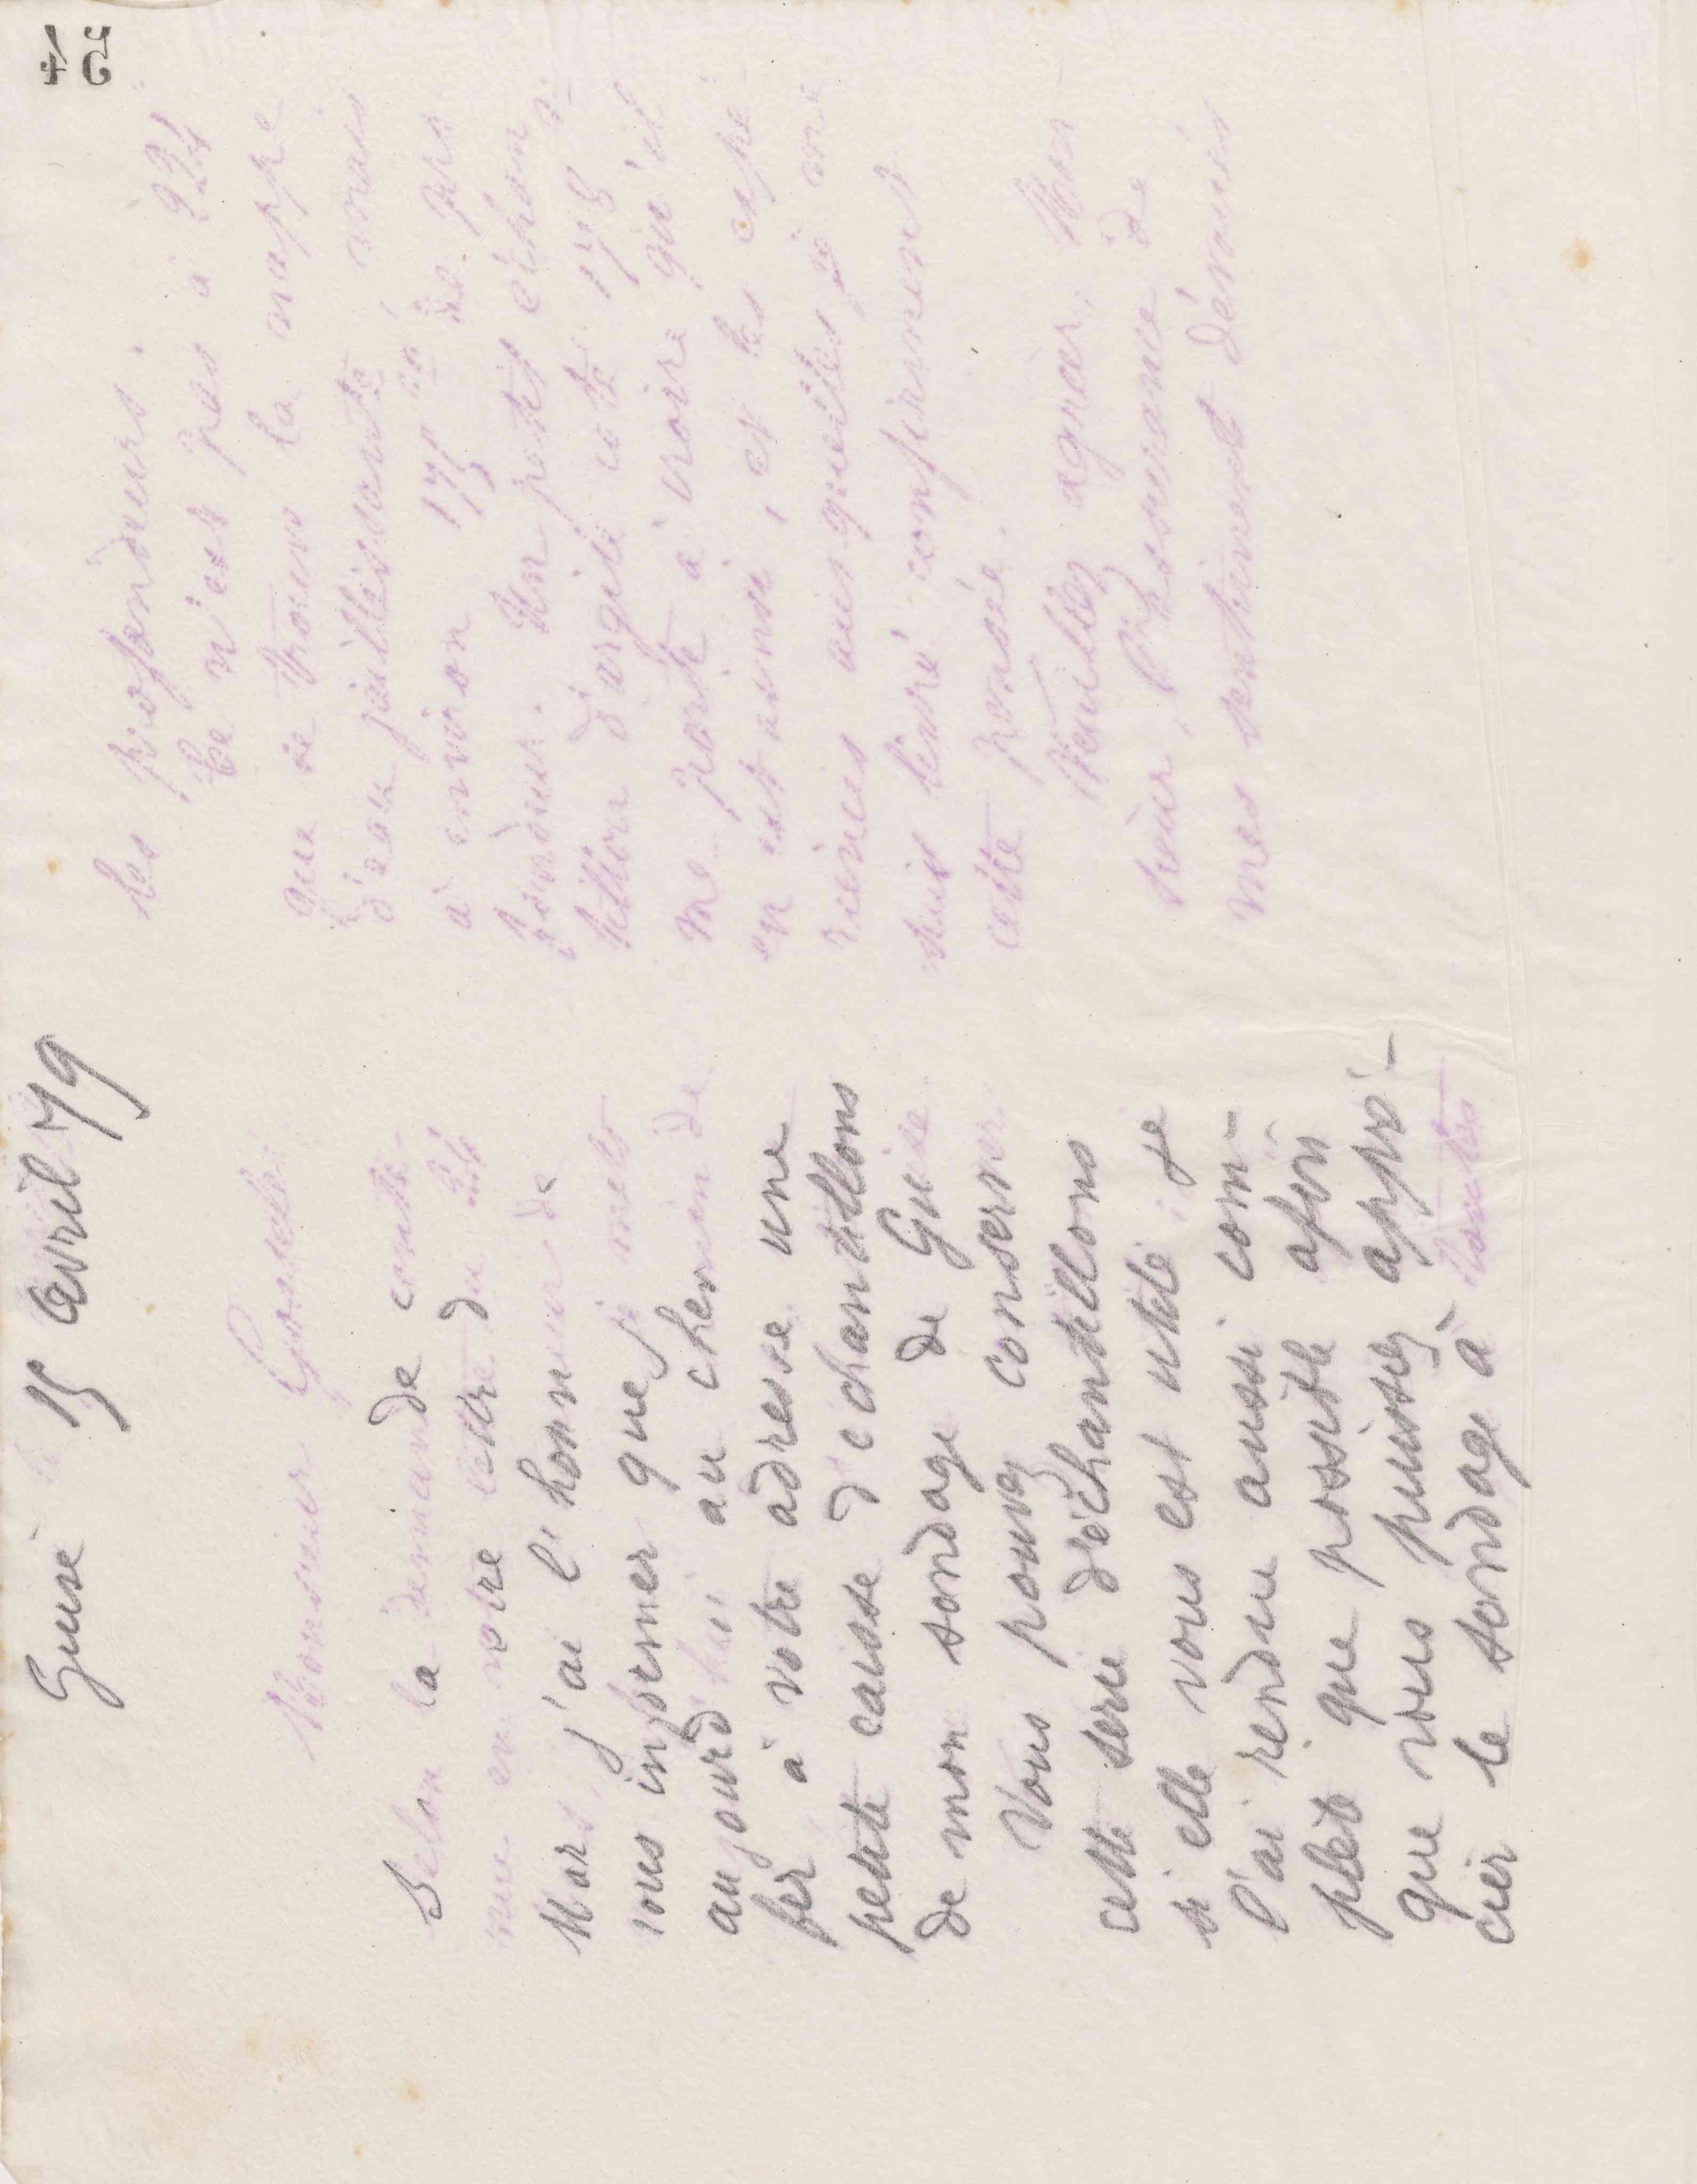 54
Guise le 15 Avril 79
Monsieur Gosselet
Selon la demande conte-
nue en votre lettre du
Mars, j'ai l'honneur de
vous informer que je mets
aujourd'hui au chemin de
fer à votre adresse une
petite caisse d'echantillons
de mon sondage de Guise.
Vous pouvez conserver
cette serie d'échantillons
si elle vous est utile je
l'ai rendue aussi com-
plète que possible afin
que vous puissiez appré-
cier le sondage à toutes
les profondeurs.
Ce n'est pas à
que se trouve la nappe
d'eau jaillissante mais
à environ 175 m de pro
fondeur. Un petit échan
tillon d'argile coté 175
me porte à croire qu'il
en est ainsi, et les expé
riences auxquelles je me
suis livré confirment
cette pensée.
Veuillez agréer, Mon
sieur, l'assurance de
mes sentiments dévoués